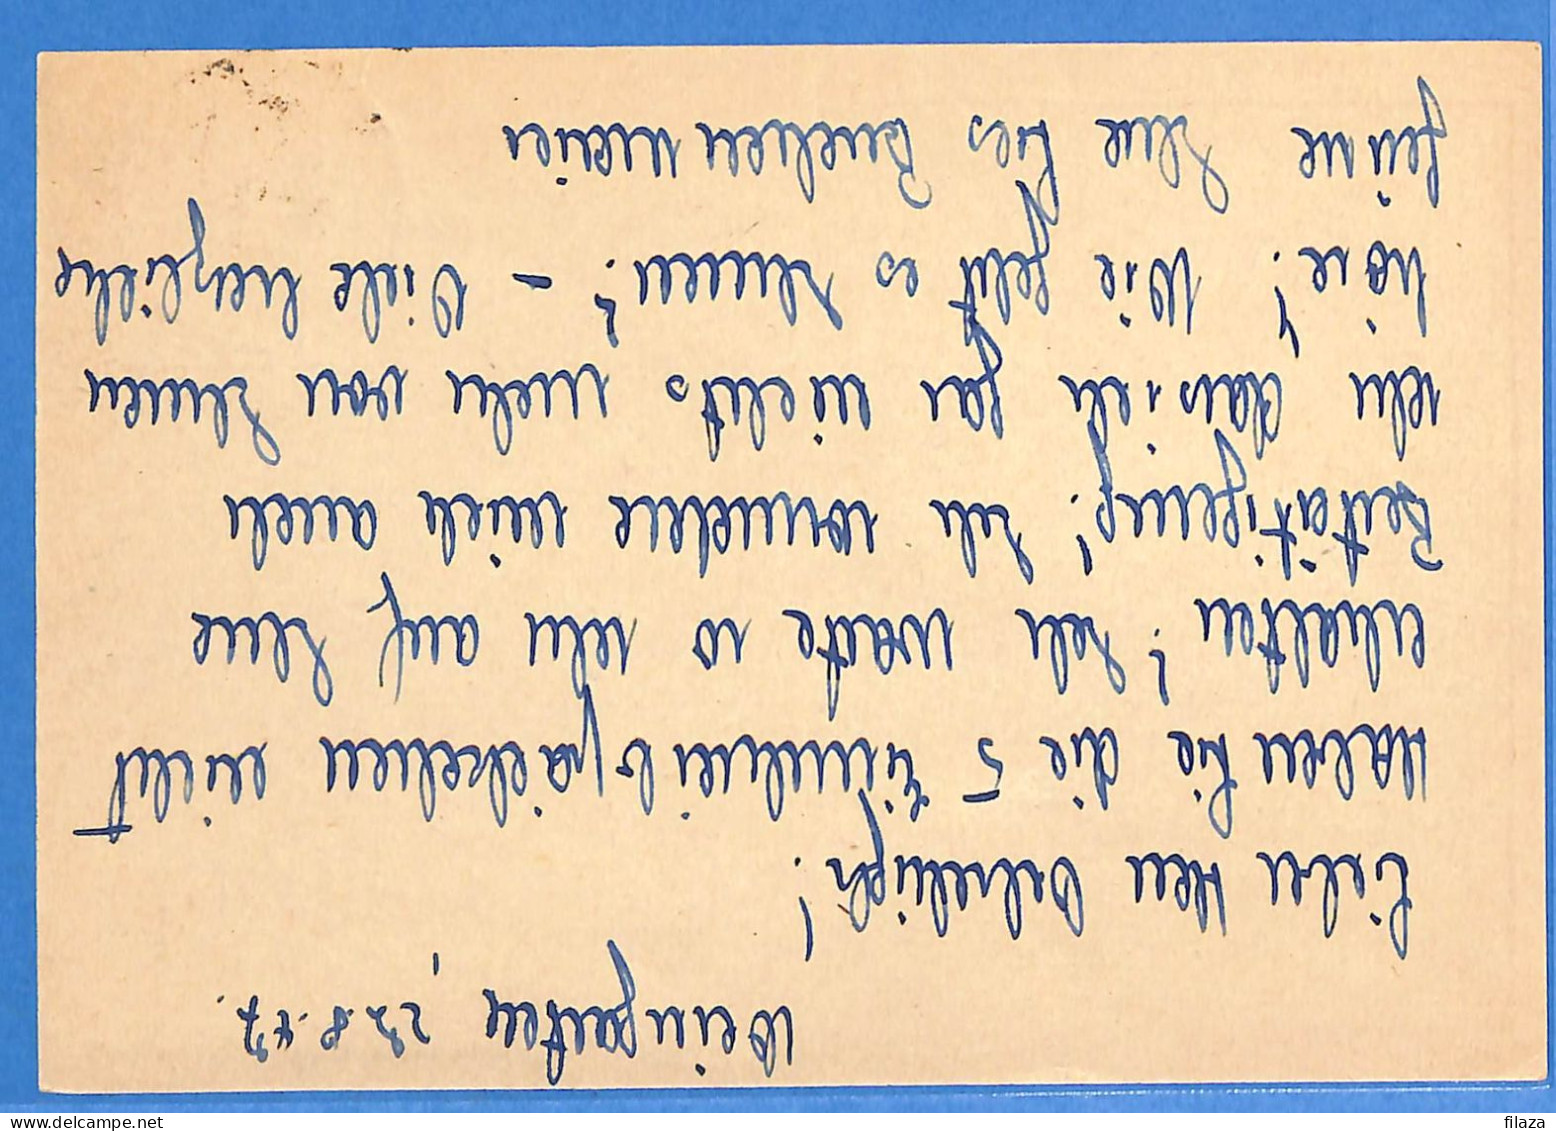 Weingarten, 27.8.47.
Lieber Herr
haben Sie die 5 Einschreibpäckchen nicht
erhalten? Ich warte so sehr auf Ihre
Bestätigung! Ich wundere mich auch
sehr, dass ich gar nichts mehr von Ihnen
höre! Wie geht es Ihnen? – Viele herzliche
Grüsse Ihre
filaza
www.delcampe.net